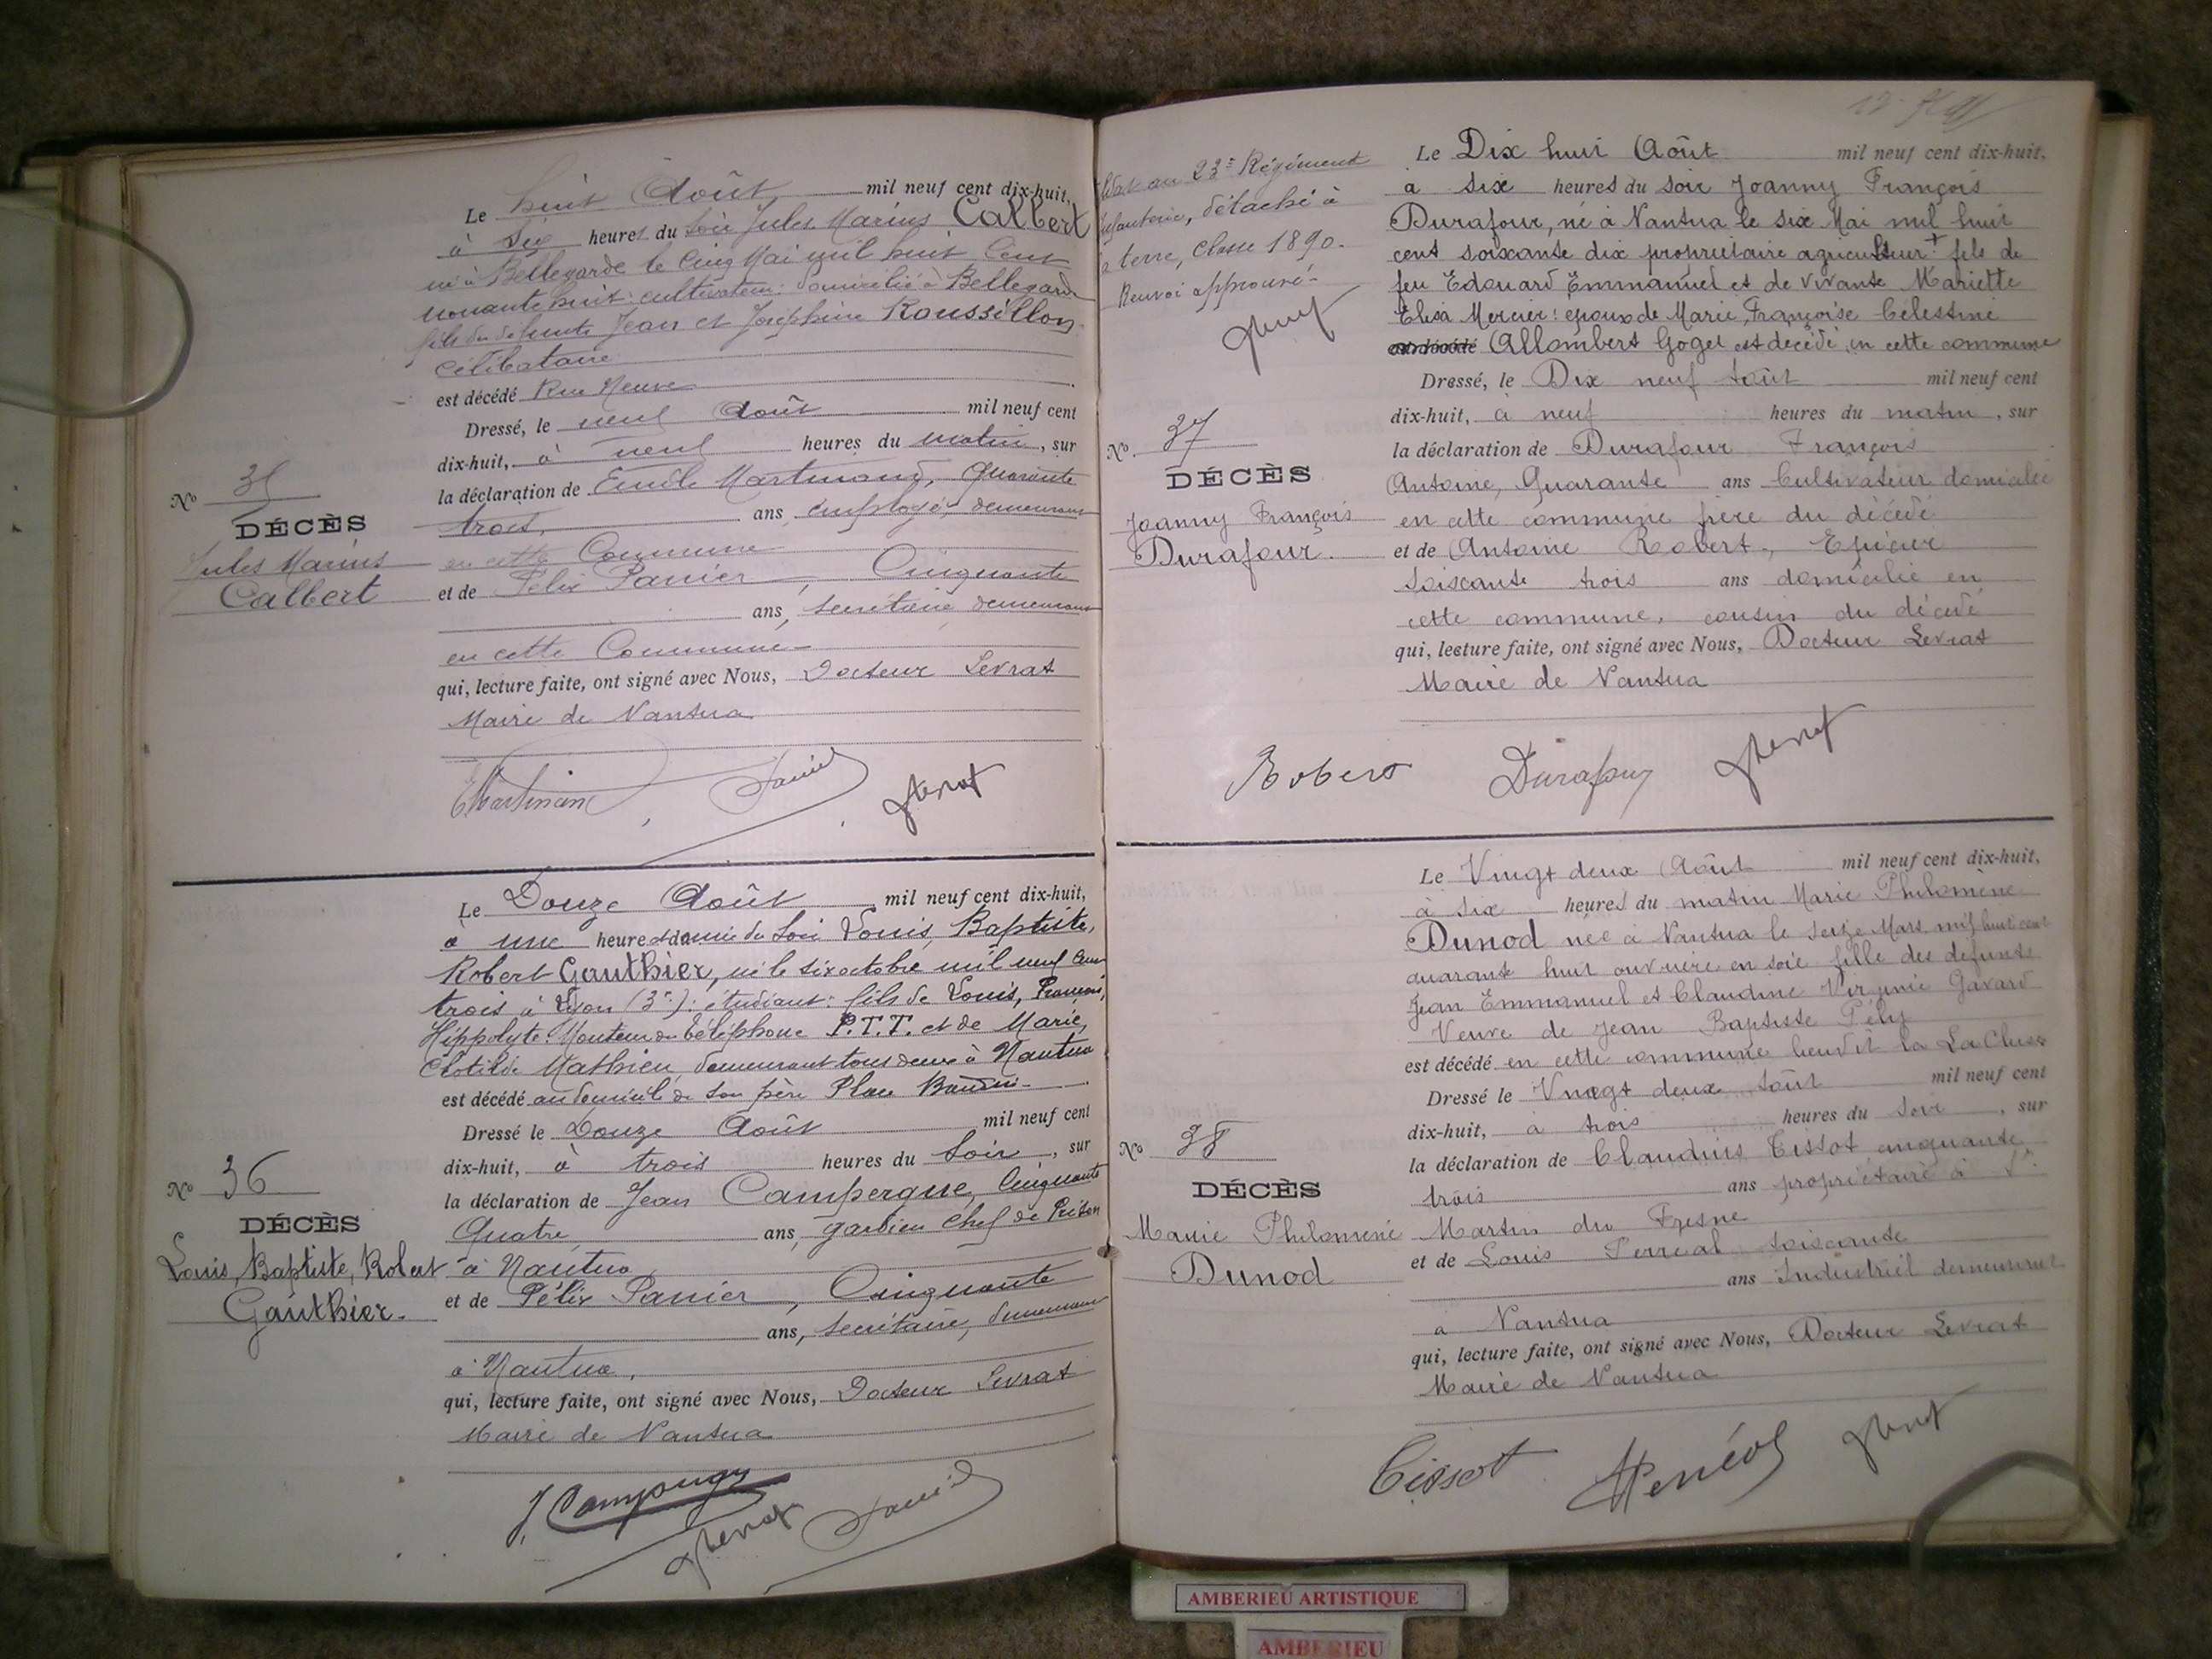 Le huit Août mil neuf cent dix-huit,
à six heures du soir Jules Marius Calbert
né à Bellegarde le cinq Mai mil huit cent
nonante huit: cultivateur: domicilié à Bellegarde
fils de défunts Jean et Joséphine Roussillon
célibataire
est décédé Rue Neuve
Dressé, le neuf Août mil neuf cent
dix-huit, à neuf heures du matin, sur
la déclaration de Emile Martinand, Quarante
trois, ans employé, demeurant
en cette Commune
et de Félix Panier, Cinquante
ans, secrétaire demeurant
en cette Commune
qui, lecture faite, ont signé avec Nous, Docteur Levrat
Maire de Nantua
No 35
DÉCÈS
Jules Marius
Calbert
Le Douze Août mil neuf cent dix-huit,
à une heure et demie du soir Louis, Baptiste,
Robert Gauthier, né le six octobre mil neuf cent
trois à Lyon (3e): étudiant: fils de Louis, François,
Hippolyte: Monteur du téléphone P.T.T. et de Marie,
Clotilde Mathieu, demeurant tous deux à Nantua
est décédé au domicile de son père Place Baudin
Dressé le Douze Août mil neuf cent
dix-huit, à trois heures du soir, sur
la déclaration de Jean Campergue, Cinquante
Quatre ans, gardien chef de Prison
à Nantua
et de Félix Panier, Cinquante
ans, secrétaire, demeurant
à Nantua,
qui, lecture faite, ont signé avec Nous, Docteur Levrat
Maire de Nantua
No 36
DÉCÈS
Louis, Baptiste, Robert
Gauthier.
au 23e Régiment
infanterie, détaché à
terre, classe 1890.
Renvoi approuvé
Le Dix huit Août mil neuf cent dix-huit,
à six heures du soir Joanny François
Durafour, né à Nantua le six Mai mil huit
cent soixante dix propriétaire agriculteur + fils de
feu Edouard Emmanuel et de vivante Mariette
Elisa Mercier: époux de Marie Françoise Célestine
Allombert Goget est décédé en cette commune
Dressé, le Dix neuf Août mil neuf cent
dix-huit, à neuf heures du matin, sur
la déclaration de Durafour François
Antoine, Quarante ans Cultivateur domicilié
en cette commune frère du décédé
et de Antoine Robert, Epicier
Soixante trois ans domicilié en
cette commune, cousin du décédé
qui, lecture faite, ont signé avec Nous, Docteur Levrat
Maire de Nantua
Robert Durafour
No. 37
DÉCÈS
Joanny François
Durafour.
Le Vingt deux Août mil neuf cent dix-huit,
à six heures du matin Marie Philomène
Dunod née à Nantua le seize Mars mil huit cent
quarante huit ouvrière en soie fille des défunts
Jean Emmanuel et Claudine Virginie Gavard
Veuve de Jean Baptiste Pély
est décédé en cette commune lieudit la La Cluse
Dressé le Vingt deux Août mil neuf cent
dix-huit, à trois heures du soir, sur
la déclaration de Claudius Tissot cinquante
trois ans propriétaire à St
Martin du Fresne
et de Louis Perréal soixante
ans Industriel demeurant
à Nantua
qui, lecture faite, ont signé avec Nous, Docteur Levrat
Maire de Nantua
Tissot
No 38
DÉCÈS
Marie Philomène
Dunod
AMBERIEU ARTISTIQUE
AMBERIEU